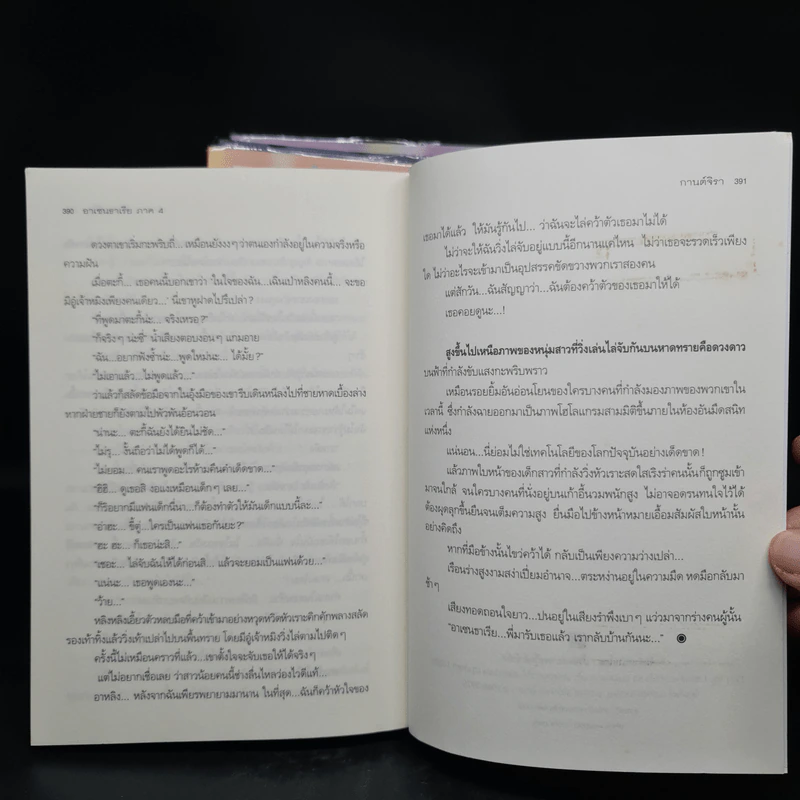 390 อาเซนธาเรีย ภาค 4
ดวงตาเขาเริ่มกะพริบถี่... เหมือนยังงงๆ ว่าตนเองกำลังอยู่ในความจริงหรือ
ความฝัน
เมื่อตะกี้... เธอคนนี้บอกเขาว่า 'ในใจของฉัน...ฉันเปาหลิงคนนี้... จะขอ
มีอู๋เจ้าหมิงเพียงคนเดียว...' นี่เขาหูฝาดไปรึเปล่า?
"ที่พูดมาตะกี้น่ะ... จริงเหรอ?"
"ก็จริงๆ น่ะซี่" น้ำเสียงตอบงอนๆ แกมอาย
"ฉัน...อยากฟังซ้ำน่ะ...พูดใหม่นะ... ได้มั้ย?"
"ไม่เอาแล้ว...ไม่พูดแล้ว..."
ว่าแล้วก็สลัดข้อมือจากในอุ้งมือของเขารีบเดินหนีลงไปที่ชายหาดเบื้องล่าง
หากฝ่ายชายก็ยังตามไปพัวพันอ้อนวอน
"น่านะ... ตะกี้ฉันยังได้ยินไม่ชัด..."
"ไม่รู้... งั้นถือว่าไม่ได้พูดก็ได้..."
"ไม่ยอม... คนเราพูดอะไรห้ามคืนคำเด็ดขาด..."
"ฮึฮิ... ดูเธอสิ งอแงเหมือนเด็กๆ เลย..."
"ก็ริอยากมีแฟนเด็กนี่นา...ก็ต้องทำตัวให้มันเด็กแบบนี้ละ..."
"อ๋าฮะ... ขี้ตู่... ใครเป็นแฟนเธอกันยะ?"
"ฮะ ฮะ... ก็เธอน่ะสิ..."
"เชอะ... ไล่จับฉันให้ได้ก่อนสิ... แล้วจะยอมเป็นแฟนด้วย..."
"แน่นะ... เธอพูดเองนะ..."
"ว้าย..."
หลิงหลิงเอี้ยวตัวหลบมือที่คว้าเข้ามาอย่างหวุดหวิดหัวเราะคิกคักพลางสลัด
รองเท้าทิ้งแล้ววิ่งเท้าเปล่าไปบนพื้นทราย โดยมีอู๋เจ้าหมิงวิ่งไล่ตามไปติดๆ
ครั้งนี้ไม่เหมือนคราวที่แล้ว...เขาตั้งใจจะจับเธอให้ได้จริงๆ
แต่ไม่อยากเชื่อเลย ว่าสาวน้อยคนนี้ช่างลื่นไหลว่องไวดีแท้...
อาหลิง... หลังจากฉันเพียรพยายามมานาน ในที่สุด...ฉันก็คว้าหัวใจของ
กานต์จิรา 391
เธอมาได้แล้ว ให้มันรู้กันไป... ว่าฉันจะไล่คว้าตัวเธอมาไม่ได้
ไม่ว่าจะให้ฉันวิ่งไล่จับอยู่แบบนี้อีกนานแค่ไหน ไม่ว่าเธอจะรวดเร็วเพียง
ใด ไม่ว่าอะไรจะเข้ามาเป็นอุปสรรคขัดขวางพวกเราสองคน
แต่สักวัน...ฉันสัญญาว่า...ฉันต้องคว้าตัวของเธอมาให้ได้
เธอคอยดูนะ...!
สูงขึ้นไปเหนือภาพของหนุ่มสาวที่วิ่งเล่นไล่จับกันบนหาดทรายคือดวงดาว
บนฟ้าที่กำลังขับแสงกะพริบพราว
เหมือนรอยยิ้มอันอ่อนโยนของใครบางคนที่กำลังมองภาพของพวกเขาใน
เวลานี้ ซึ่งกำลังฉายออกมาเป็นภาพโฮโลแกรมสามมิติขึ้นภายในห้องอันมืดสนิท
แห่งหนึ่ง
แน่นอน...นี่ย่อมไม่ใช่เทคโนโลยีของโลกปัจจุบันอย่างเด็ดขาด!
แล้วภาพใบหน้าของเด็กสาวที่กำลังวิ่งหัวเราะสดใสเริงร่าคนนั้นก็ถูกซูมเข้า
มาจนใกล้ จนใครบางคนที่นั่งอยู่บนเก้าอี้นวมพนักสูง ไม่อาจอดรนทนใจไว้ได้
ต้องผุดลุกขึ้นยืนจนเต็มความสูง ยื่นมือไปข้างหน้าหมายเอื้อมสัมผัสใบหน้านั้น
อย่างคิดถึง
หากที่มือข้างนั้นไขว่คว้าได้ กลับเป็นเพียงความว่างเปล่า...
เรือนร่างสูงงามสง่าเปี่ยมอำนาจ...ตระหง่านอยู่ในความมืด หดมือกลับมา
ช้าๆ
เสียงทอดถอนใจยาว...ปนอยู่ในเสียงรำพึงเบาๆ แว่วมาจากร่างคนผู้นั้น
"อาเซนธาเรีย...พี่มารับเธอแล้ว เรากลับบ้านกันนะ..."